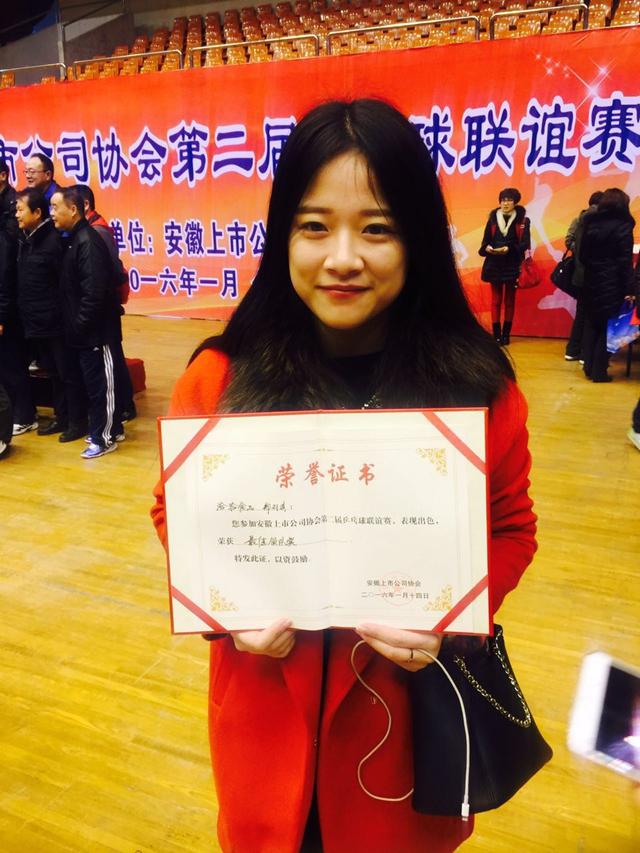 市公司协会第二届
球联谊赛
单位：安徽上市公
一六年一月
荣誉证书
您参加安徽上市公司协会第二届乒乓球联谊赛，表现出色，
荣获
特发此证，以资鼓励.
安徽上市公司协会
二〇一六年一月十四日